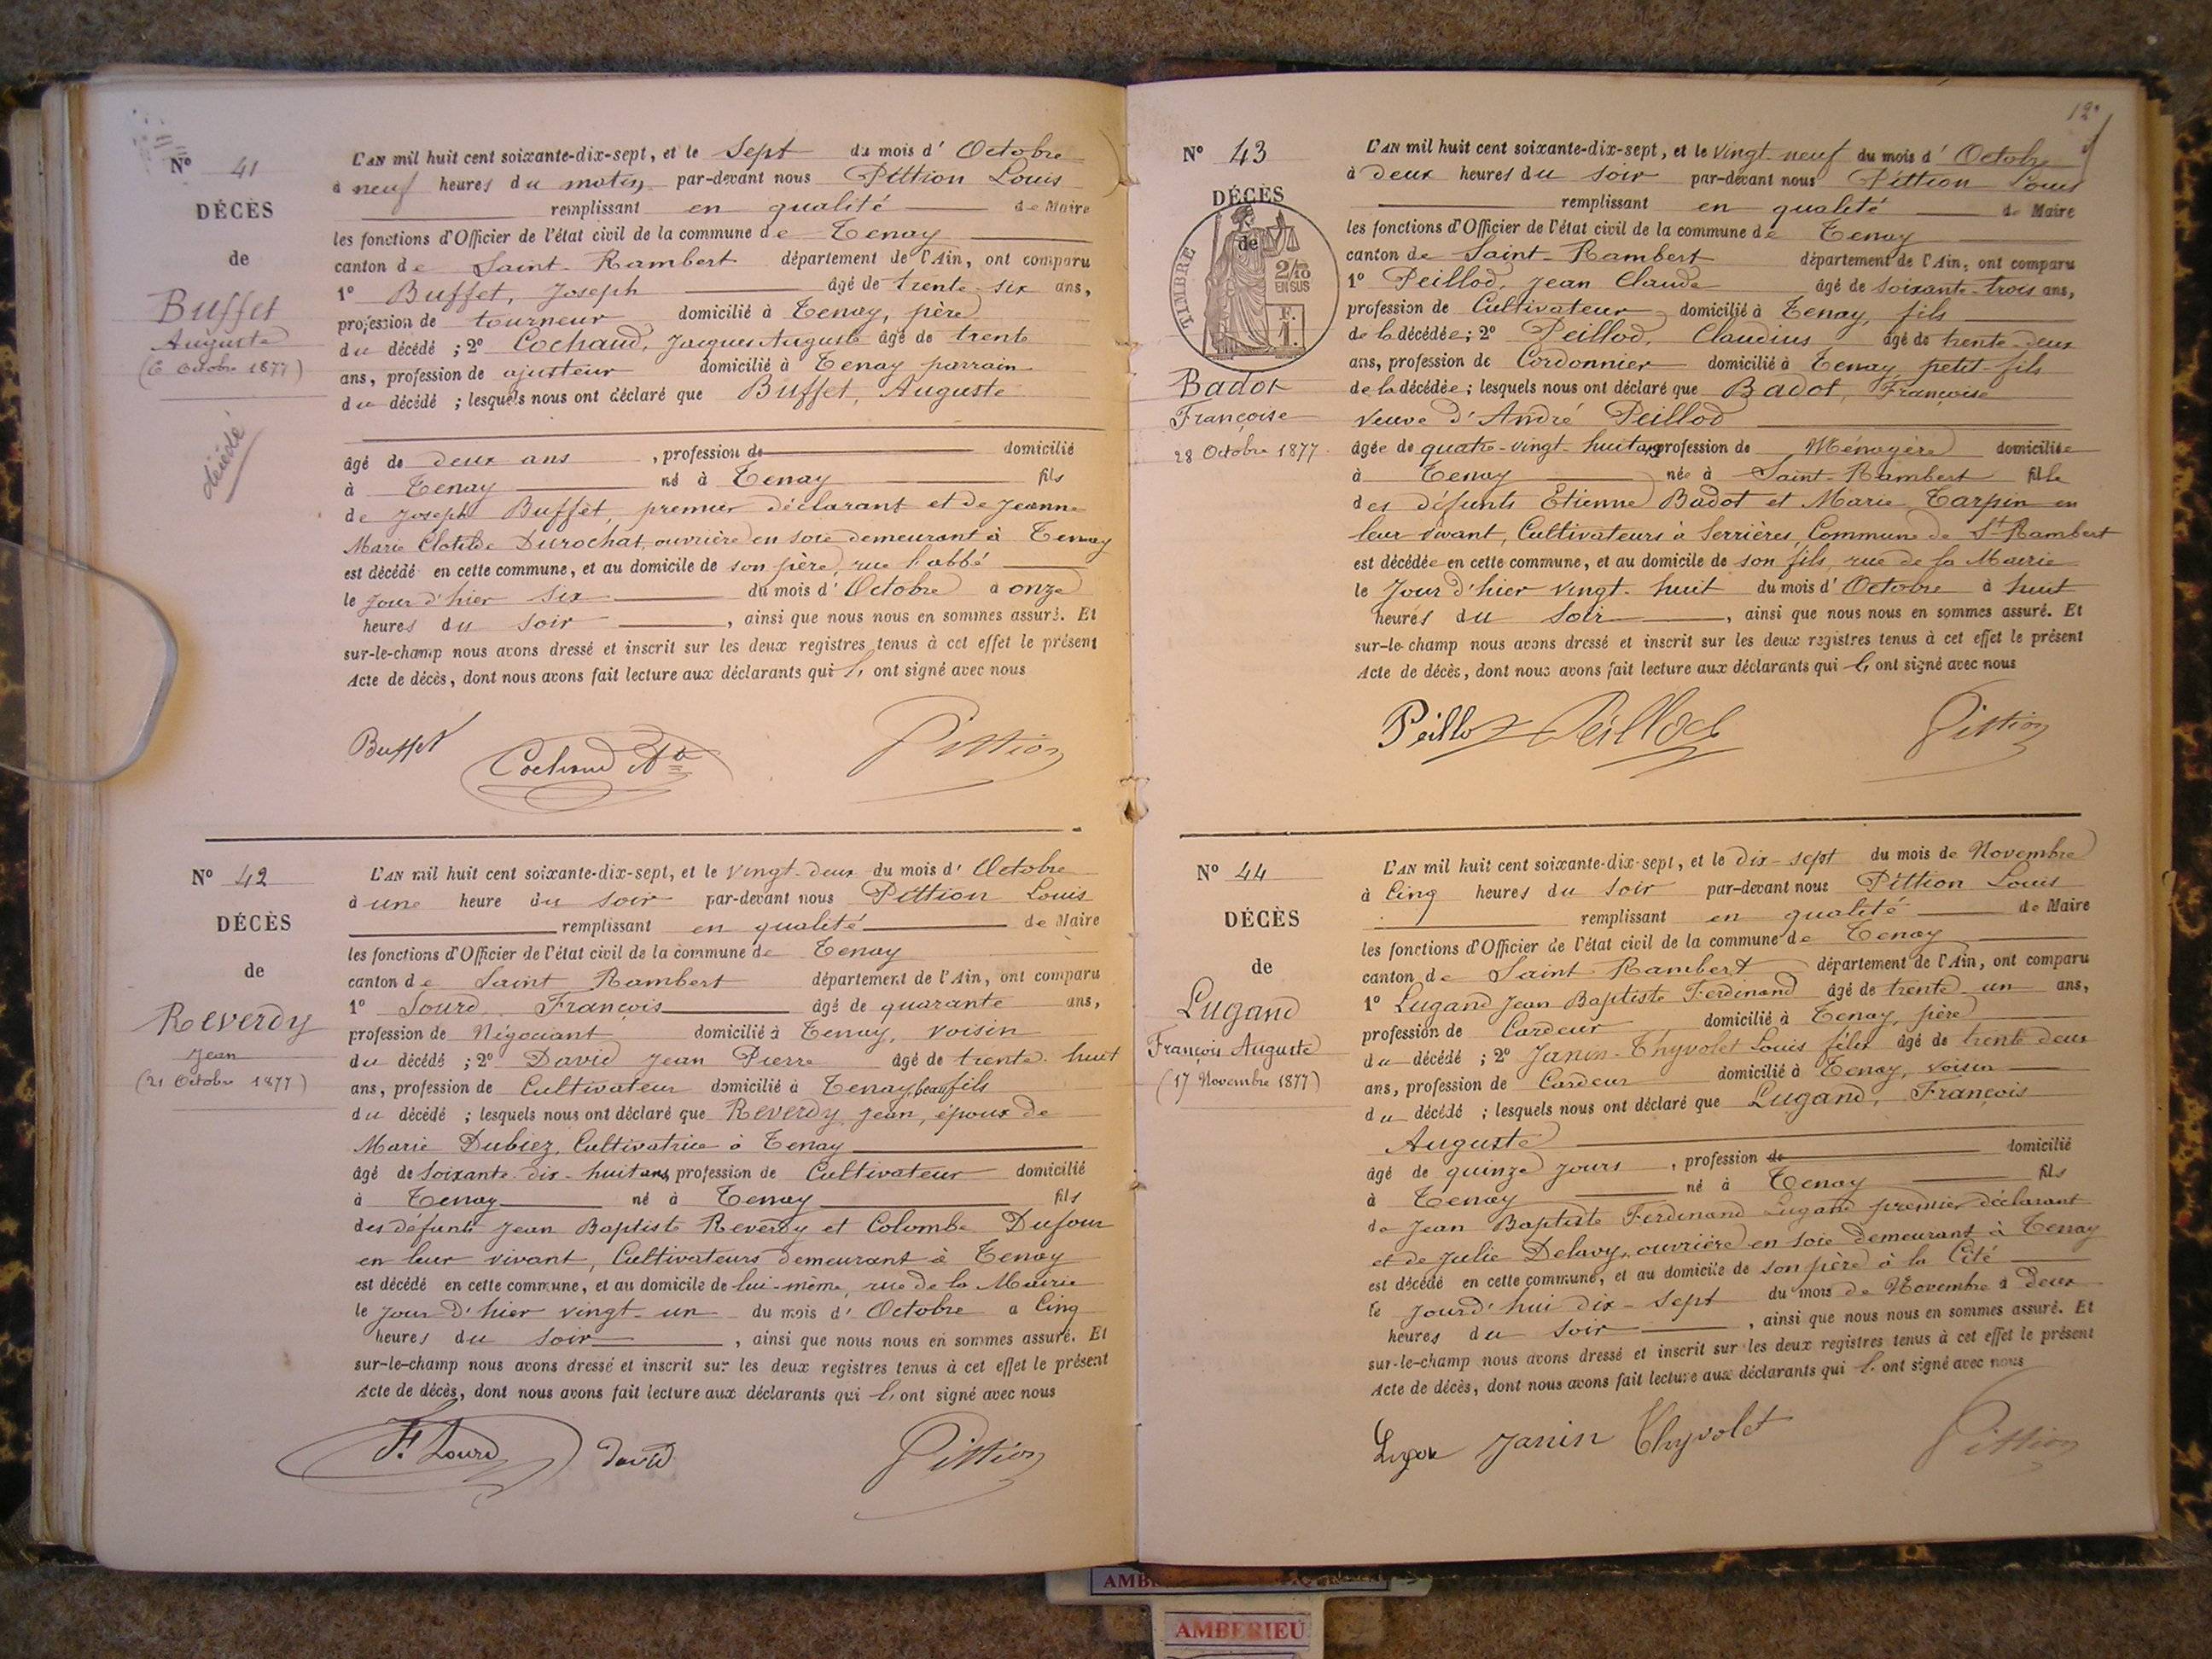 N° 41
DÉCÈS
de
Buffet
Auguste
(6 Octobre 1877)
décédé
L'AN mil huit cent soixante-dix-sept, et le Sept du mois d'Octobre
à neuf heures du matin par-devant nous Pittion Louis
remplissant en qualité de Maire
les fonctions d'Officier de l'état civil de la commune de Tenay
canton de Saint-Rambert département de l'Ain, ont comparu
1° Buffet, Joseph âgé de trente-six ans,
profession de tourneur domicilié à Tenay, père
du décédé ; 2° Cochaud, Jacques Auguste âgé de trente
ans, profession de ajusteur domicilié à Tenay parrain
du décédé ; lesquels nous ont déclaré que Buffet, Auguste
âgé de deux ans , profession de domicilié
à Tenay né à Tenay fils
de Joseph Buffet, premier déclarant et de Jeanne
Marie Clotilde Durochat, ouvrière en soie demeurant à Tenay
est décédé en cette commune, et au domicile de son père, rue l'abbé
le jour d'hier six du mois d'Octobre à onze
heures du soir , ainsi que nous nous en sommes assuré. Et
sur-le-champ nous avons dressé et inscrit sur les deux registres tenus à cet effet le présent
Acte de décès, dont nous avons fait lecture aux déclarants qui l' ont signé avec nous
Buffet Cochaud Pittion
N° 42
DÉCÈS
de
Reverdy
Jean
(21 Octobre 1877)
L'AN mil huit cent soixante-dix-sept, et le vingt-deux du mois d'Octobre
à une heure du soir par-devant nous Pittion Louis
remplissant en qualité de Maire
les fonctions d'Officier de l'état civil de la commune de Tenay
canton de Saint Rambert département de l'Ain, ont comparu
1° Lourd François âgé de quarante ans,
profession de Négociant domicilié à Tenay, voisin
du décédé ; 2° David Jean Pierre âgé de trente-huit
ans, profession de Cultivateur domicilié à Tenay, beau fils
du décédé ; lesquels nous ont déclaré que Reverdy Jean, époux de
Marie Dubiez, Cultivatrice à Tenay
âgé de soixante-dix-huit ans, profession de Cultivateur domicilié
à Tenay né à Tenay fils
des défunts Jean Baptiste Reverdy et Colombe Dufour
en leur vivant, Cultivateurs demeurant à Tenay
est décédé en cette commune, et au domicile de lui-même, rue de la Mairie
le jour d'hier vingt-un du mois d'Octobre à Cinq
heures du soir , ainsi que nous nous en sommes assuré. Et
sur-le-champ nous avons dressé et inscrit sur les deux registres tenus à cet effet le présent
Acte de décès, dont nous avons fait lecture aux déclarants qui l' ont signé avec nous
F. Lourd David Pittion
N° 43
DÉCÈS
de
TIMBRE
2/10
EN SUS
F.
1.
Badot
Françoise
28 Octobre 1877
L'AN mil huit cent soixante-dix-sept, et le vingt-neuf du mois d'Octobre
à deux heures du soir par-devant nous Pittion Louis
remplissant en qualité de Maire
les fonctions d'Officier de l'état civil de la commune de Tenay
canton de Saint-Rambert département de l'Ain, ont comparu
1° Peillod, Jean Claude âgé de soixante-trois ans,
profession de Cultivateur domicilié à Tenay, fils
de la décédée ; 2° Peillod, Claudius âgé de trente-deux
ans, profession de Cordonnier domicilié à Tenay petit-fils
de la décédée ; lesquels nous ont déclaré que Badot, Françoise
Veuve d'André Peillod
âgée de quatre-vingt-huit ans, profession de Ménagère domiciliée
à Tenay née à Saint-Rambert fille
des défunts Étienne Badot et Marie Tarpin en
leur vivant, Cultivateurs à Serrières, Commune de St-Rambert
est décédée en cette commune, et au domicile de son fils, rue de la Mairie
le jour d'hier vingt-huit du mois d'Octobre à huit
heures du soir , ainsi que nous nous en sommes assuré. Et
sur-le-champ nous avons dressé et inscrit sur les deux registres tenus à cet effet le présent
Acte de décès, dont nous avons fait lecture aux déclarants qui l' ont signé avec nous
Peillod Peillod Pittion
N° 44
DÉCÈS
de
Lugand
François Auguste
(17 Novembre 1877)
L'AN mil huit cent soixante-dix-sept, et le dix-sept du mois de Novembre
à Cinq heures du soir par-devant nous Pittion Louis
remplissant en qualité de Maire
les fonctions d'Officier de l'état civil de la commune de Tenay
canton de Saint Rambert département de l'Ain, ont comparu
1° Lugand Jean Baptiste Ferdinand âgé de trente-un ans,
profession de Cardeur domicilié à Tenay, père
du décédé ; 2° Janin-Thyvolet Louis félix âgé de trente deux
ans, profession de Cardeur domicilié à Tenay, voisin
du décédé ; lesquels nous ont déclaré que Lugand, François
Auguste
âgé de quinze jours , profession de domicilié
à Tenay né à Tenay fils
de Jean Baptiste Ferdinand Lugand premier déclarant
et de Julie Delavy, ouvrière en soie demeurant à Tenay
est décédé en cette commune, et au domicile de son père à la Cité
le jourd'hui dix-sept du mois de Novembre à deux
heures du soir , ainsi que nous nous en sommes assuré. Et
sur-le-champ nous avons dressé et inscrit sur les deux registres tenus à cet effet le présent
Acte de décès, dont nous avons fait lecture aux déclarants qui l' ont signé avec nous
Janin Thyvolet Pittion
AMBERIEU